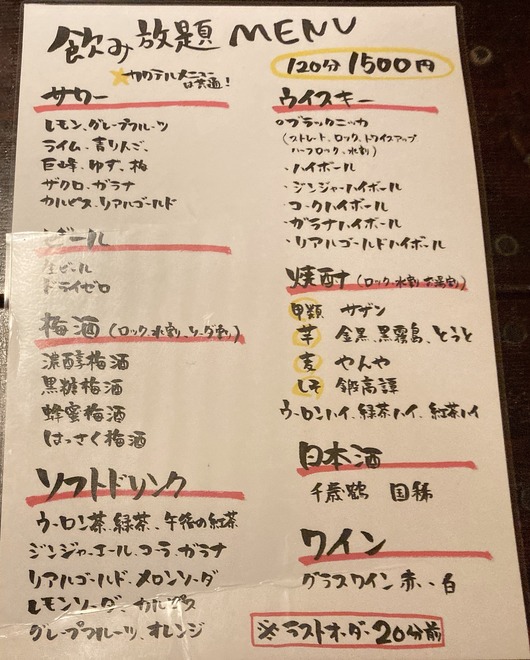 飲み放題 MENU
120分 1500円
★カクテルメニューは共通!
サワー
レモン、グレープフルーツ
ライム、青りんご、
巨峰、ゆず、梅
ザクロ、ガラナ
カルピス、リアルゴールド
ビール
生ビール
ドライゼロ
梅酒 (ロック、水割、ソーダ割)
濃醇梅酒
黒糖梅酒
蜂蜜梅酒
はっさく梅酒
ソフトドリンク
ウーロン茶、緑茶、午後の紅茶
ジンジャーエール、コーラ、ガラナ
リアルゴールド、メロンソーダ
レモンソーダ、カルピス
グレープフルーツ、オレンジ
ウイスキー
○ブラックニッカ
(ストレート、ロック、トワイスアップ
ハーフロック、水割)
・ハイボール
・ジンジャーハイボール
・コークハイボール
・ガラナハイボール
・リアルゴールドハイボール
焼酎 (ロック、水割、お湯割)
甲類 サザン
芋 金黒、黒霧島、とうと
麦 やんや
しそ 鍛高譚
ウーロンハイ、緑茶ハイ、紅茶ハイ
日本酒
千歳鶴 国稀
ワイン
グラスワイン 赤、白
※ラストオーダー20分前